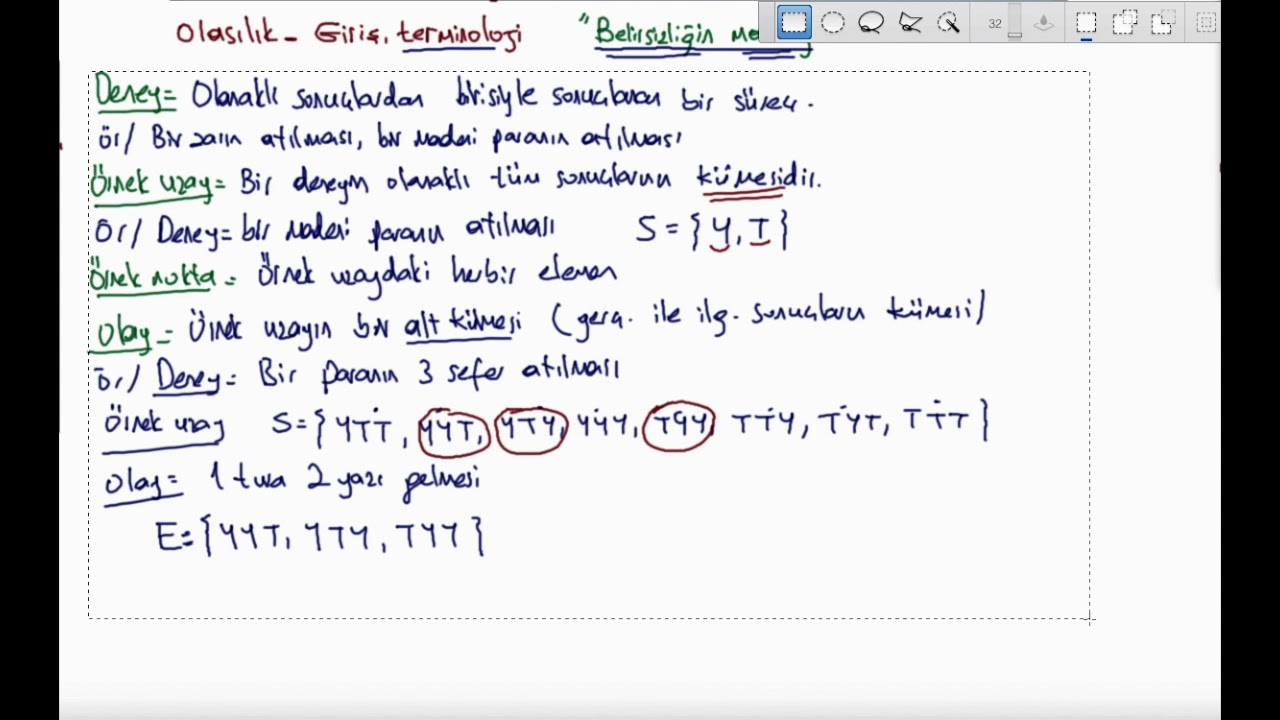 Olasılık - Giriş, terminoloji "Belirsizliğin
32
Deney = Olanaklı sonuçlardan birisiyle sonuçlanan bir süreç.
Ör/ Bir zarın atılması, bir madeni paranın atılması
Örnek uzay = Bir deneyin olanaklı tüm sonuçlarının kümesidir.
Ör/ Deney = bir madeni paranın atılması S = { Y, T }
Örnek nokta = Örnek uzaydaki herbir eleman
Olay = Örnek uzayın bir alt kümesi (gerç. ile ilg. sonuçların kümesi)
Ör/ Deney = Bir paranın 3 sefer atılması
Örnek uzay S = { YTT, YYT, YTY, YYY, TYY, TTY, TYT, TTT }
Olay = 1 tura 2 yazı gelmesi
E = { YYT, YTY, TYY }